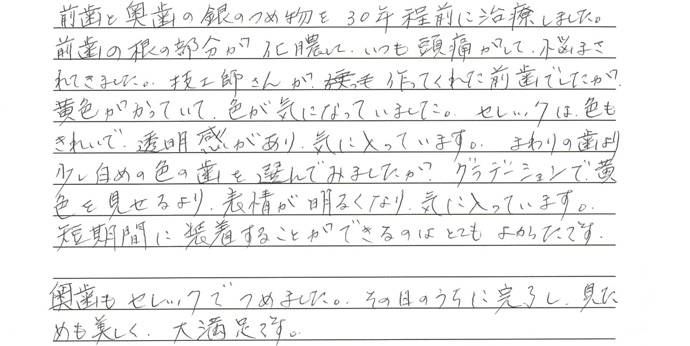 前歯と奥歯の銀のつめ物を30年程前に治療しました。
前歯の根の部分が化膿して、いつも頭痛がして、悩まさ
れてきました。技工師さんが、作ってくれた前歯でしたが、
黄色がかっていて、色が気になっていました。セレックは、色も
きれいで、透明感があり、気に入っています。まわりの歯より
少し白めの色の歯を選んでみましたが、グラデーションで、黄
色を見せるより、表情が明るくなり、気に入っています。
短期間に装着することができるのはとてもよかったです。
奥歯もセレックでつめました。その日のうちに完了し、見た
めも美しく、大満足です。